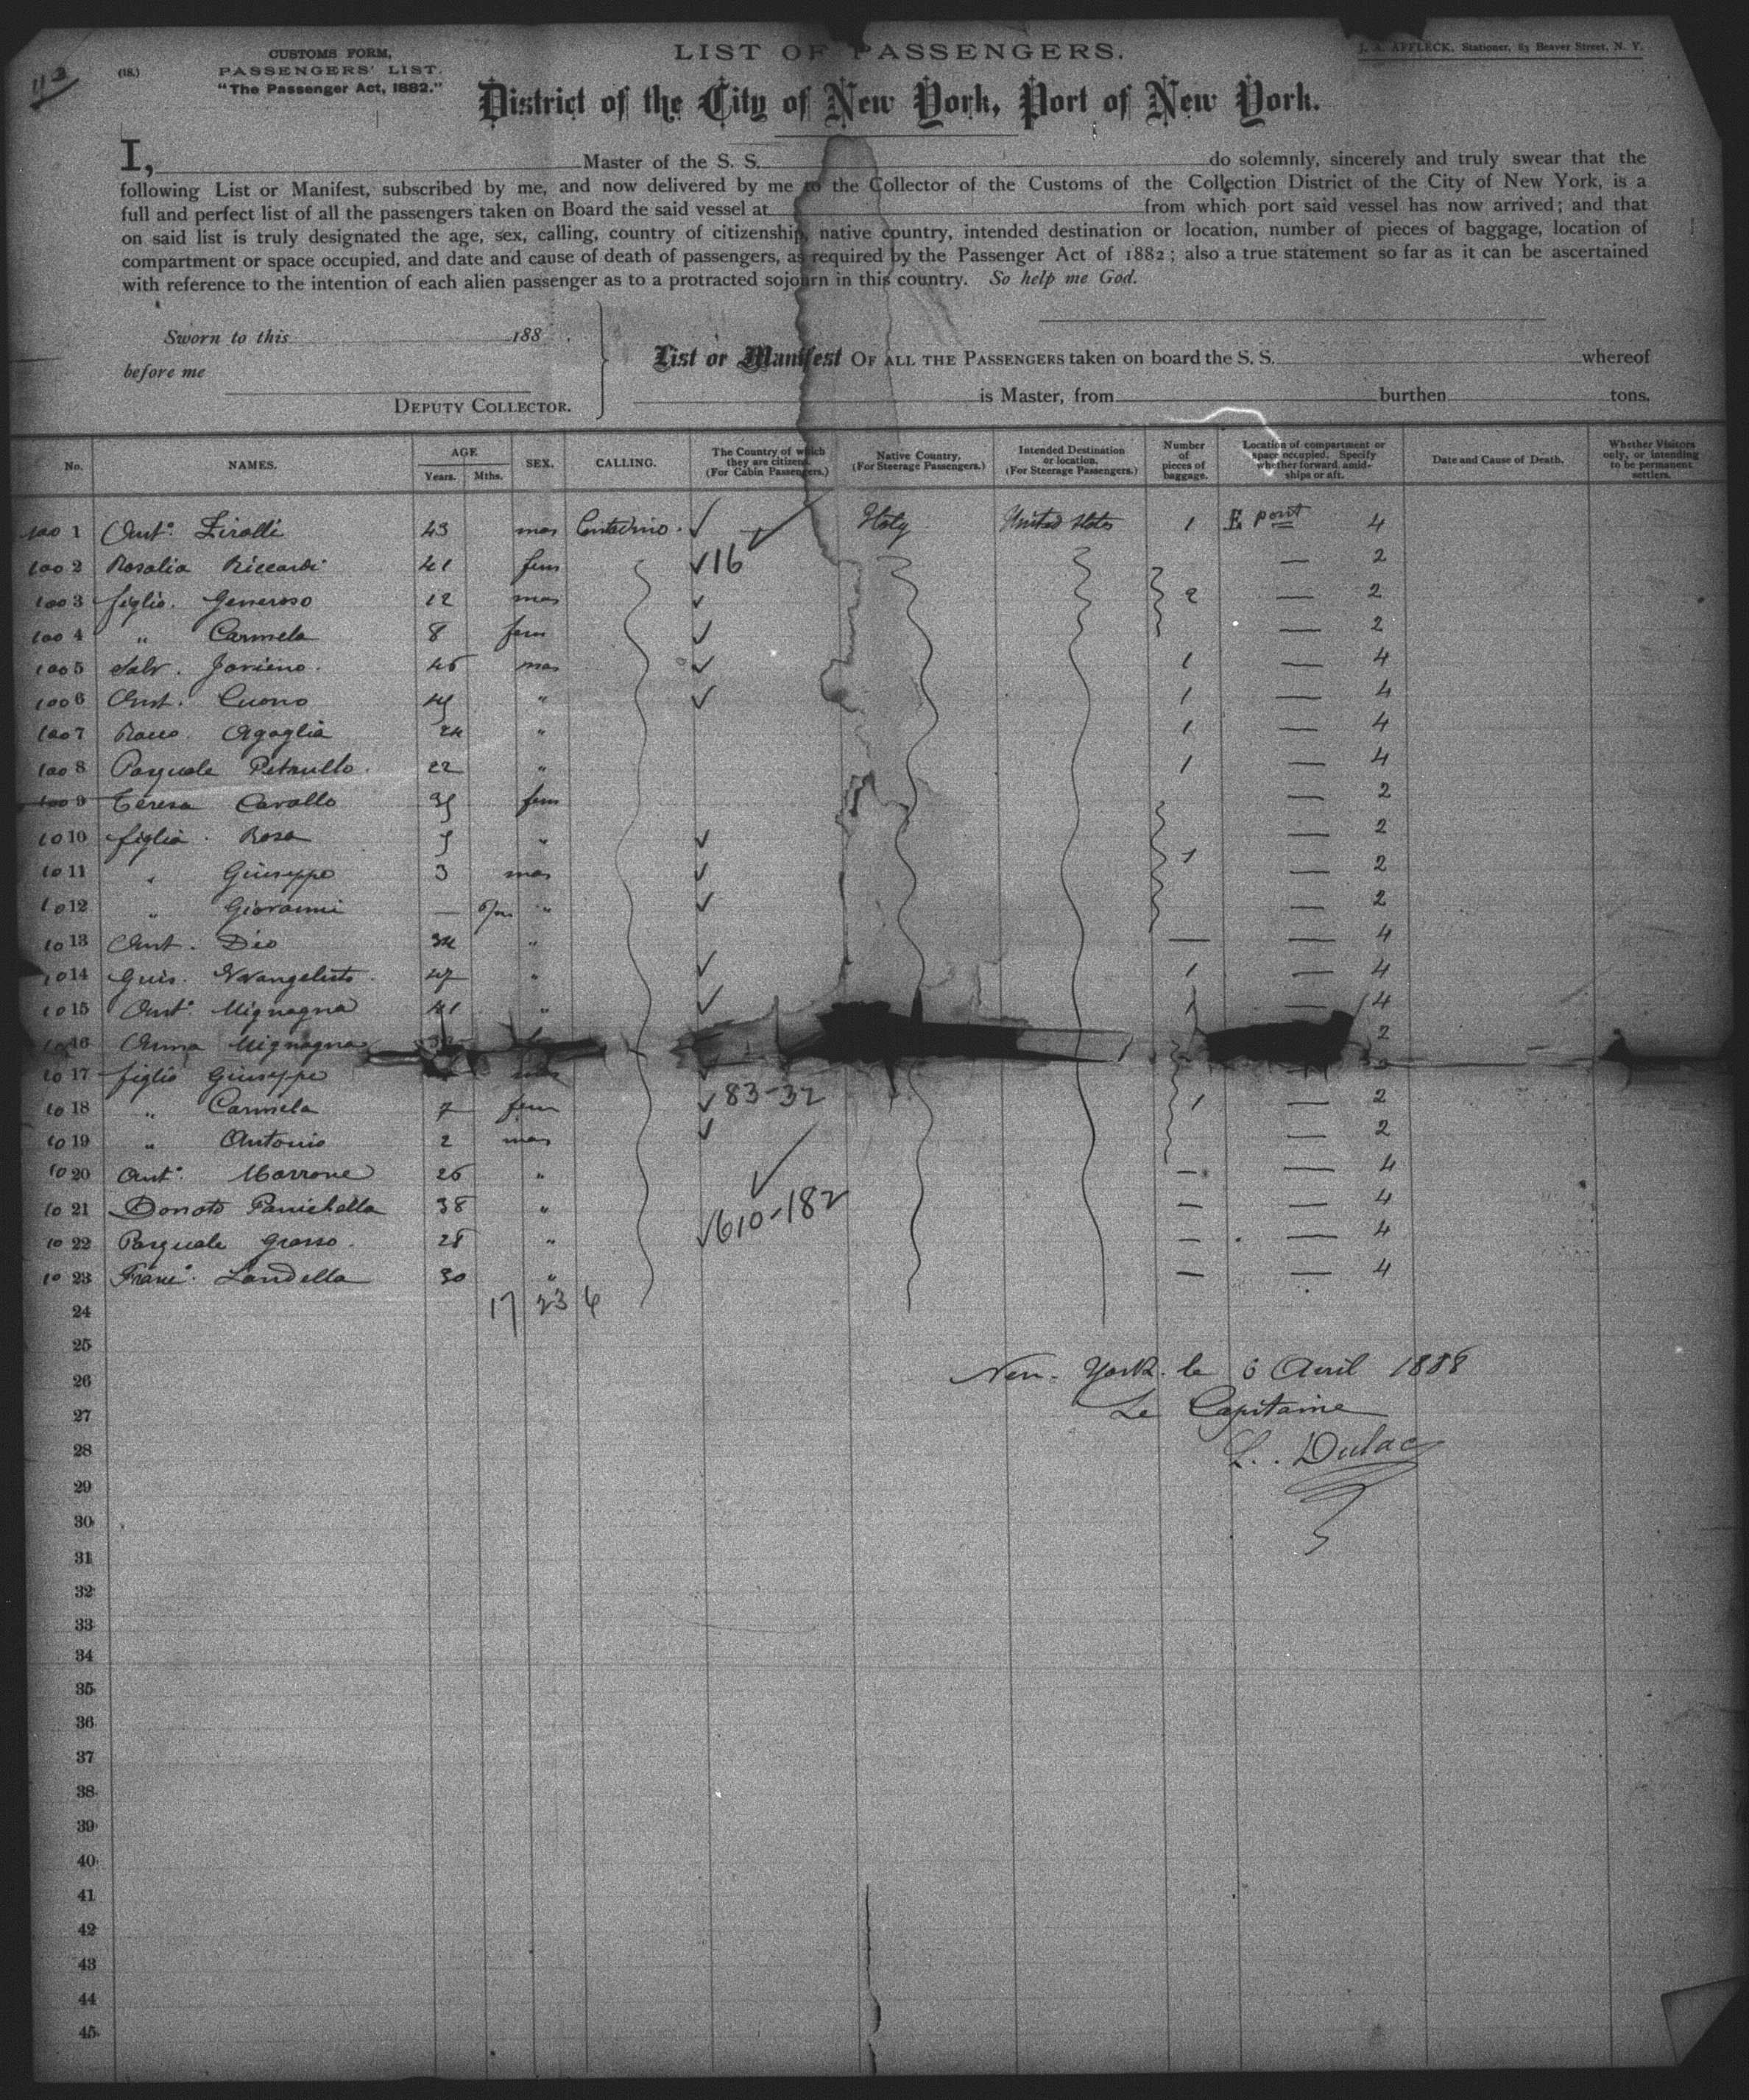 112
(18.)
CUSTOMS FORM,
PASSENGERS' LIST.
"The Passenger Act, 1882."
LIST OF PASSENGERS.
J. A. AFFLECK, Stationer, 83 Beaver Street, N. Y.
District of the City of New York, Port of New York.
I, Master of the S. S. do solemnly, sincerely and truly swear that the
following List or Manifest, subscribed by me, and now delivered by me to the Collector of the Customs of the Collection District of the City of New York, is a
full and perfect list of all the passengers taken on Board the said vessel at from which port said vessel has now arrived; and that
on said list is truly designated the age, sex, calling, country of citizenship, native country, intended destination or location, number of pieces of baggage, location of
compartment or space occupied, and date and cause of death of passengers, as required by the Passenger Act of 1882; also a true statement so far as it can be ascertained
with reference to the intention of each alien passenger as to a protracted sojourn in this country. So help me God.
Sworn to this 188 .
before me
DEPUTY COLLECTOR.
List or Manifest OF ALL THE PASSENGERS taken on board the S. S. whereof
is Master, from burthen tons.
No. NAMES. AGE Years. Mths. SEX. CALLING. The Country of which they are citizens. (For Cabin Passengers.) Native Country. (For Steerage Passengers.) Intended Destination or location. (For Steerage Passengers.) Number of pieces of baggage. Location of compartment or space occupied. Specify whether forward, amidships or aft. Date and Cause of Death. Whether Visitors only, or intending to be permanent settlers.
100 1 Ant° Zirolli 43 mas Contadino. Italy United States 1 E pont 4
100 2 Rosalia Riccardi 41 fem 16 — 2
100 3 figlio. Generoso 12 mas 2 — 2
100 4 " Carmela 8 fem — 2
100 5 Salv. 45 mas 1 — 4
100 6 Ant. Cuono " 1 — 4
100 7 Rocco. Agaglia 24 " 1 — 4
100 8 Pasquale Petrullo. 22 " 1 — 4
100 9 Teresa Cavallo fem — 2
10 10 figlia. Rosa " — 2
10 11 " Giuseppe 3 mas 1 — 2
10 12 " Giovanni — 6/m " — 2
10 13 Ant. Dio 34 " — — 4
10 14 Gius. 47 " 1 — 4
10 15 Ant° Mignagna 41 " 1 — 4
10 16 Anna Mignagna 2
10 17 figlio Giuseppe mas
10 18 " Carmela 7 fem 83-32 1 — 2
10 19 " Antonio 2 mas — 2
10 20 Ant° Marrone 26 " — — 4
10 21 Donato Panichella 38 " — — 4
10 22 Pasquale Grasso. 28 " 610-182 — — 4
10 23 Franc° Landella 30 " — — 4
24 17 23 6
25
26 New-York. le 6 Avril 1888
27 Le Capitaine
28 L. Dulac
29
30
31
32
33
34
35
36
37
38
39
40
41
42
43
44
45